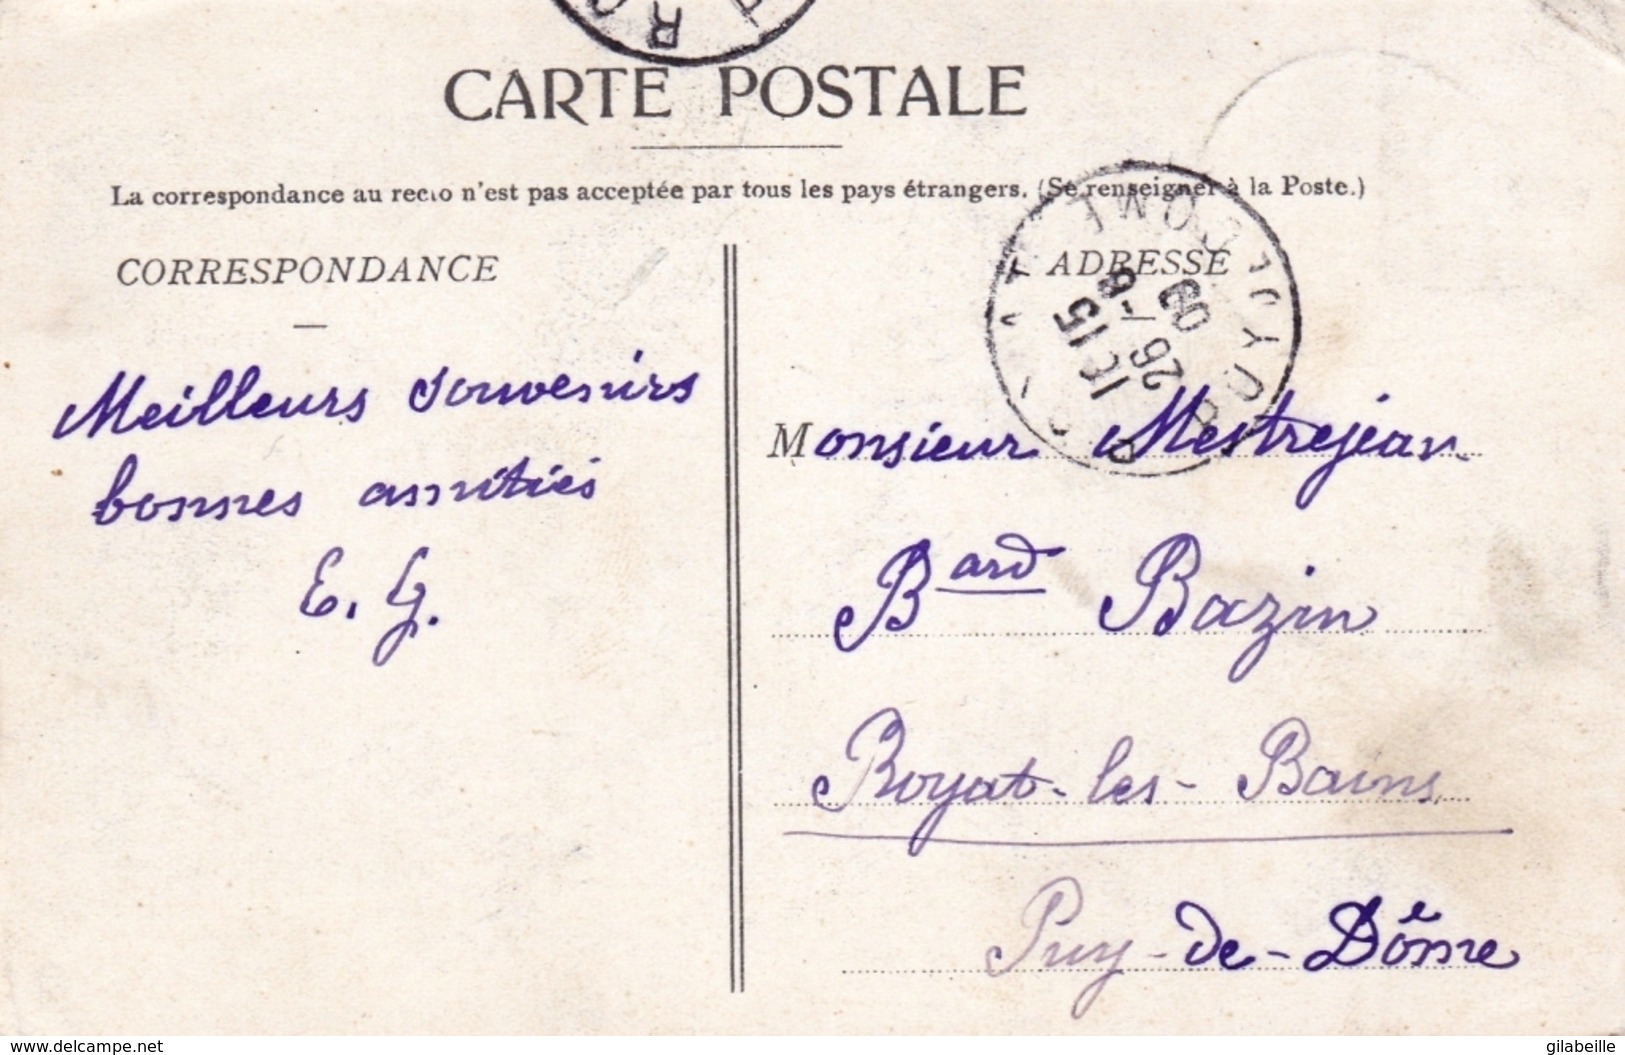 CARTE POSTALE
La correspondance au recto n'est pas acceptée par tous les pays étrangers. (Se renseigner à la Poste.)
CORRESPONDANCE
Meilleurs souvenirs
bonnes amitiés
E. G.
ADRESSE
10 15
26 - 8
09
PUY DE DOME
Monsieur Mestrejean
Bard Bazin
Royat-les-Bains
Puy-de-Dôme
delcampe.net
gilabeille